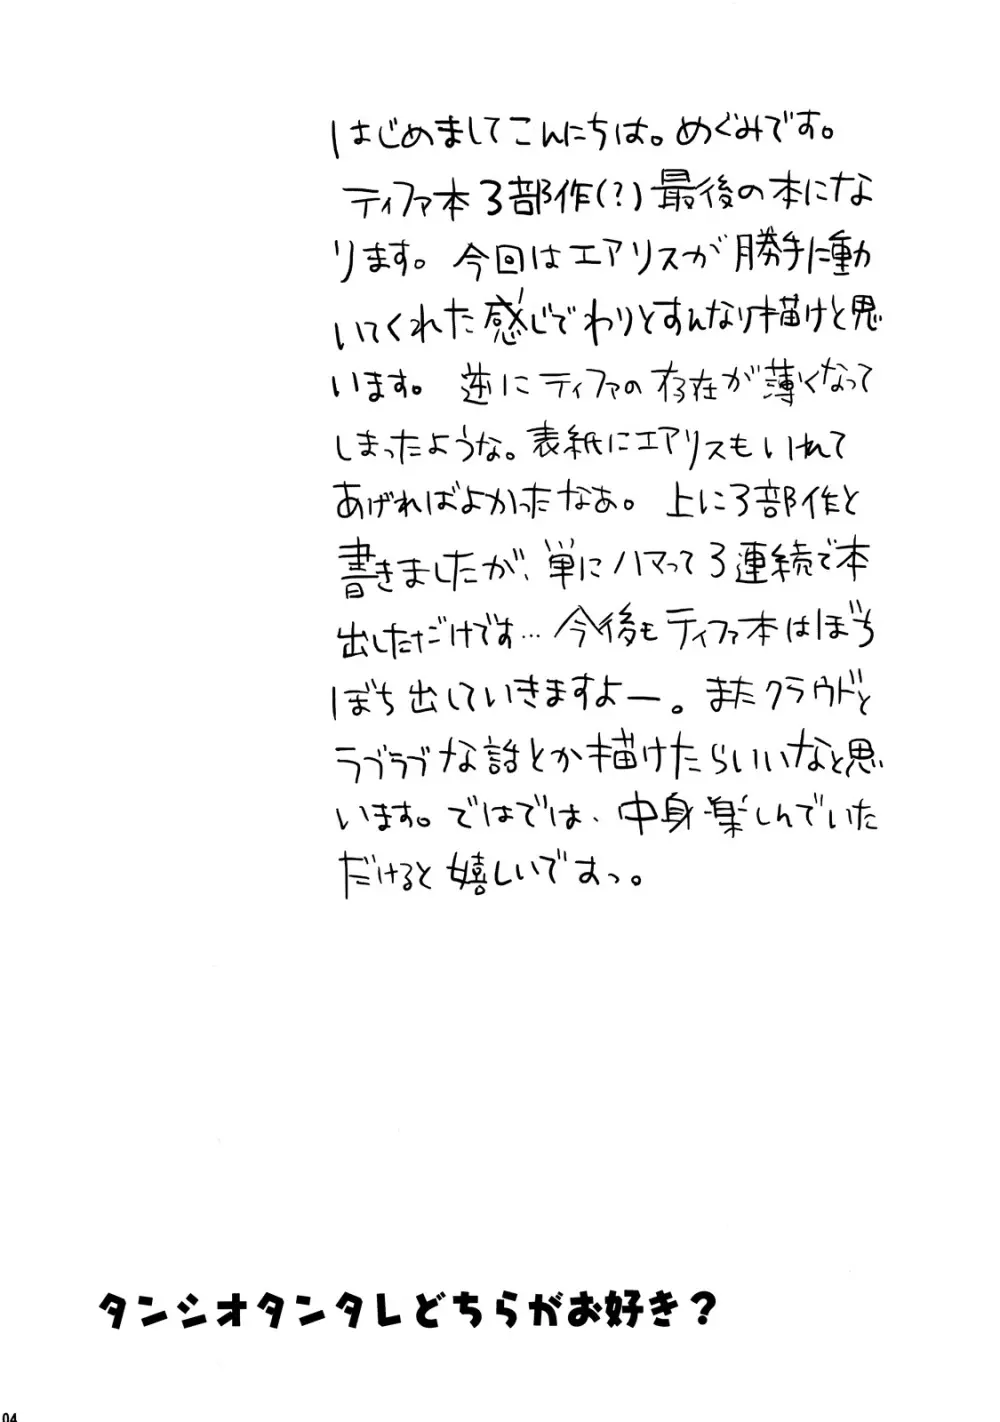 はじめましてこんにちは。めぐみです。
ティファ本3部作(?)最後の本にな
ります。今回はエアリスが勝手に動
いてくれた感じでわりとすんなり描けと思
います。逆にティファの存在が薄くなって
しまったような。表紙にエアリスもいれて
あげればよかったなぁ。上に3部作と
書きましたが、単にハマって3連続で本
出しただけです…今後もティファ本はぼち
ぼち出していきますよー。またクラウドと
ラブラブな話とか描けたらいいなと思
います。ではでは、中身楽しんでいた
だけると嬉しいですっ。
タンシオタンタレどちらがお好き?
04